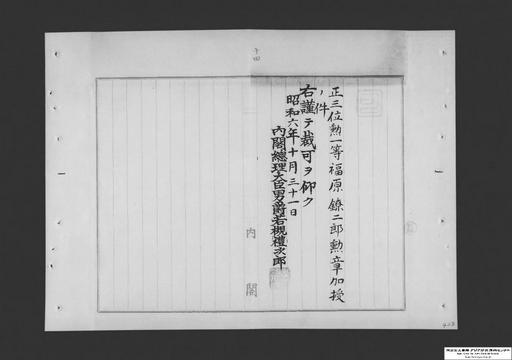 正三位勲一等福原鐐二郎勲章加授
ノ件
右謹テ裁可ヲ仰ク
昭和六年十月三十一日
内閣總理大臣男爵若槻禮次郎
内閣